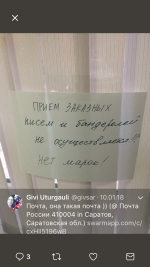 ПРИЕМ ЗАКАЗНЫХ
писем и бандеролей
не осуществляется
НЕТ марок!
Givi Uturgauli @givsar · 10.01.18
Почта, она такая почта )) (@ Почта
России 410004 in Саратов,
Саратовская обл.) swarmapp.com/c/
3